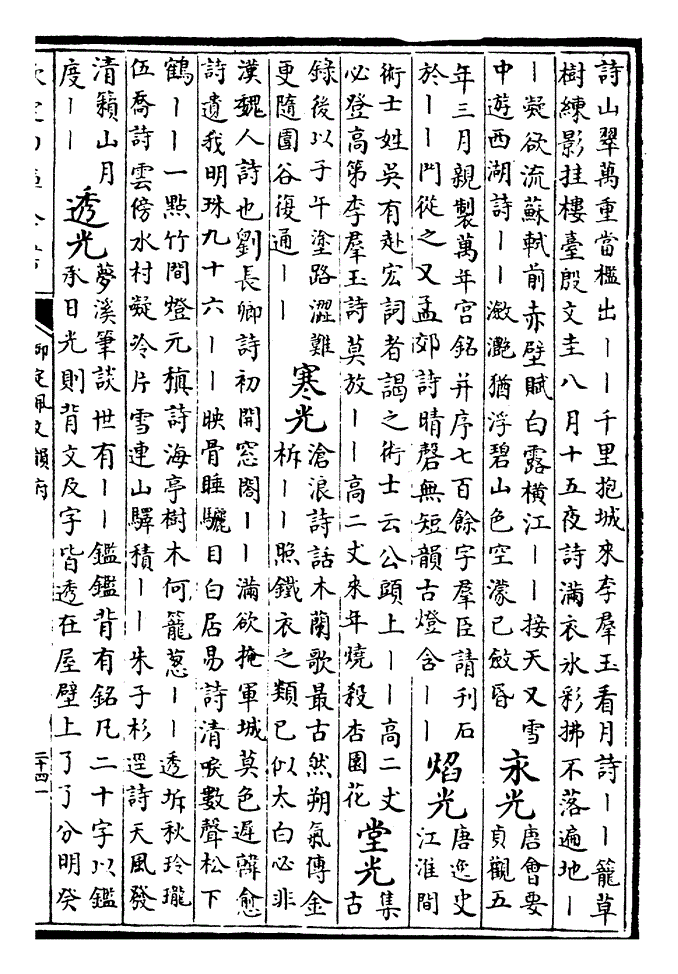 詩山翠萬重當檻出丨丨千里抱城來李羣玉看月詩丨丨籠草
樹練影挂樓臺殷文圭八月十五夜詩滿衣冰彩拂不落遍地丨
丨凝欲流蘇軾前赤壁賦白露橫江丨丨接天又雪
中遊西湖詩丨丨瀲灧猶浮碧山色空濛已斂昏
永光
唐會要
貞觀五
年三月親製萬年宮銘并序七百餘字羣臣請刊石
於丨丨門從之又孟郊詩晴磬無短韻古燈含丨丨
焰光
唐逸史
江淮間
術士姓吳有赴宏詞者謁之術士云公頭上丨丨高二丈
必登高第李羣玉詩莫放丨丨高二丈來年燒殺杏園花
堂光
集
古
錄後以子午塗路澀難
更隨圍谷復通丨丨
寒光
滄浪詩話木蘭歌最古然朔氣傳金
柝丨丨照鐵衣之類已似太白必非
漢魏人詩也劉長卿詩初開窓閣丨丨滿欲掩軍城莫色遲韓愈
詩遺我明珠九十六丨丨映骨睡驪目白居易詩清唳數聲松下
鶴丨丨一點竹間燈元稹詩海亭樹木何籠葱丨丨透坼秋玲瓏
伍喬詩雲傍水村凝冷片雪連山驛積丨丨朱子杉逕詩天風發
清籟山月
度丨丨
透光
夢溪筆談世有丨丨鑑鑑背有銘凡二十字以鑑
承日光則背文及字皆透在屋壁上了了分明癸
御定佩文韻府